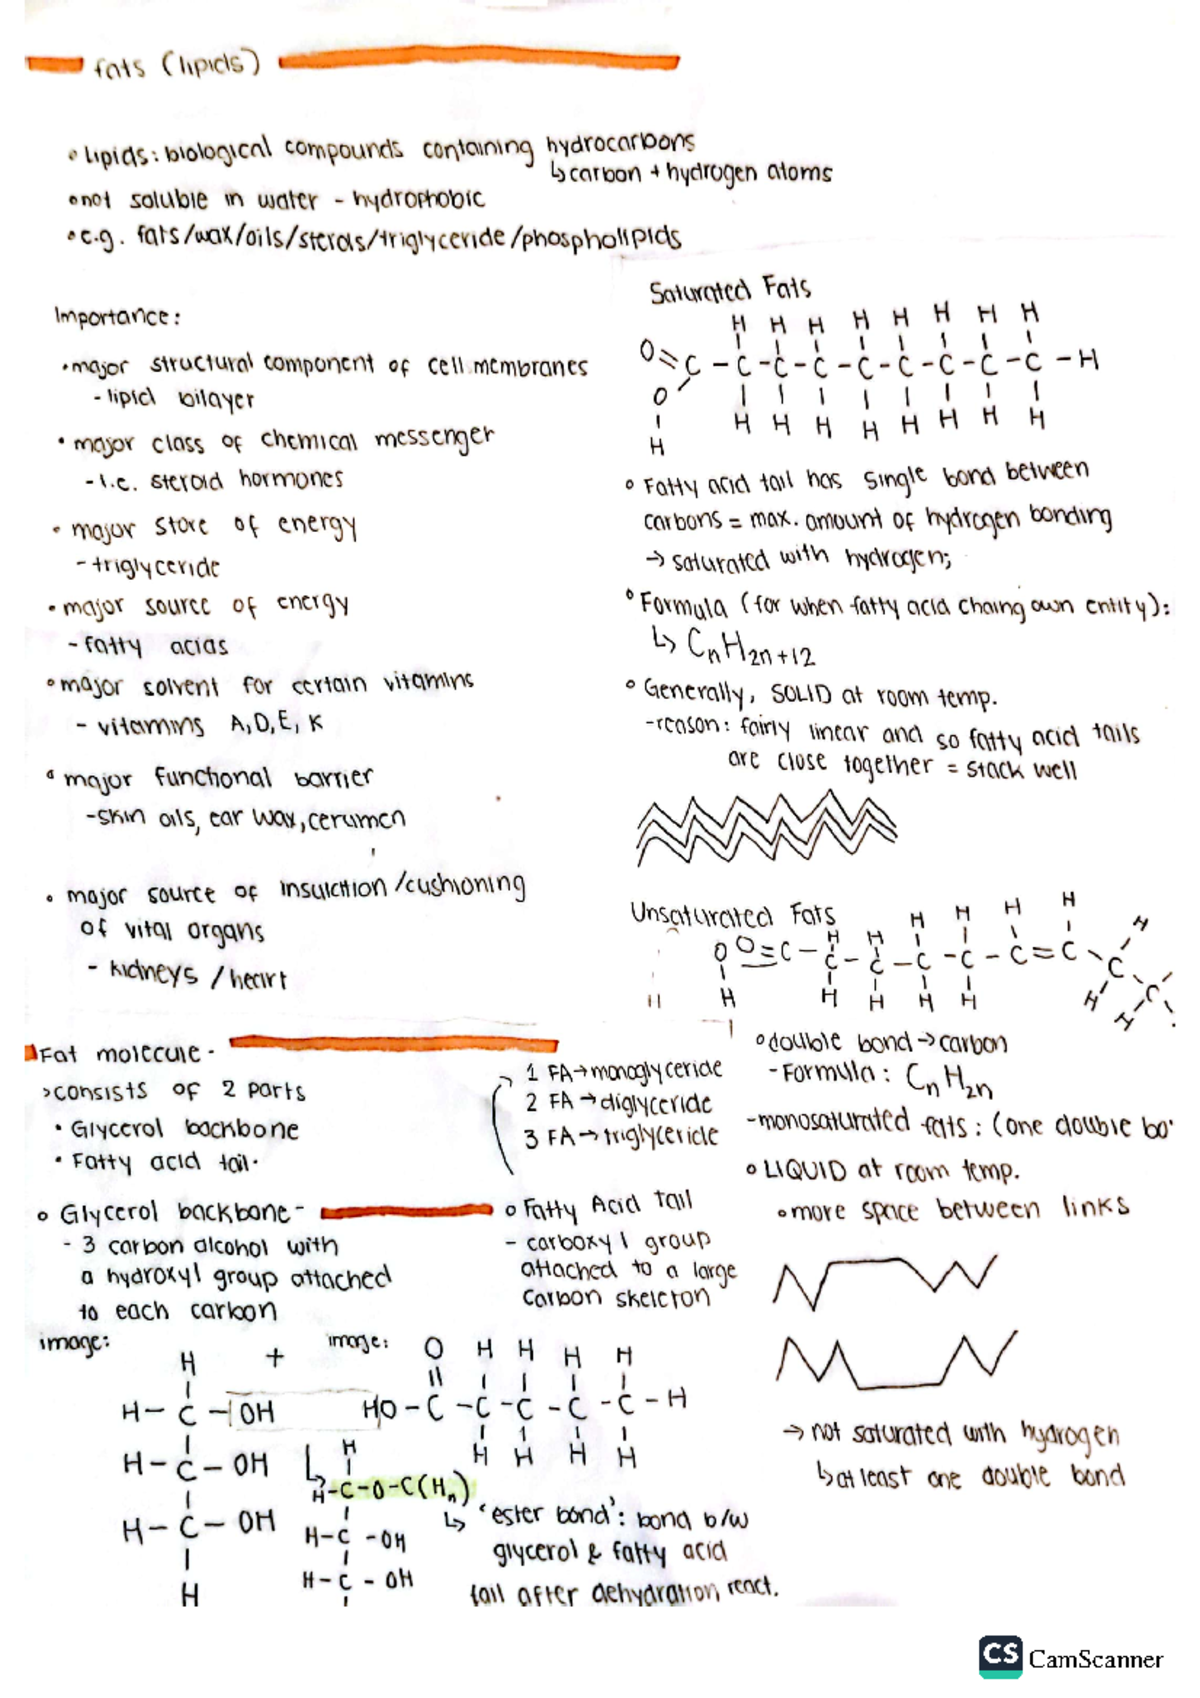 fats (lipids)
• lipids: biological compounds containing hydrocarbons
↳ carbon + hydrogen atoms
• not soluble in water - hydrophobic
• e.g. fats/wax/oils/sterols/triglyceride/phospholipids
Importance:
• major structural component of cell membranes
- lipid bilayer
• major class of chemical messenger
- i.e. steroid hormones
• major store of energy
- triglyceride
• major source of energy
- fatty acids
• major solvent for certain vitamins
- vitamins A, D, E, K
• major functional barrier
- skin oils, ear wax, cerumen
• major source of insulation/cushioning
of vital organs
- kidneys / heart
Saturated Fats
H H H H H H H H
O=C-C-C-C-C-C-C-C-C-H
O
H
H H H H H H H H
• Fatty acid tail has single bond between
carbons = max. amount of hydrogen bonding
→ saturated with hydrogen;
• Formula (for when fatty acid chaing own entity):
↳ CnH2n+12
• Generally, SOLID at room temp.
- reason: fairly linear and so fatty acid tails
are close together = stack well
Unsaturated Fats
H H H H H H H
O O=C-C-C-C-C-C=C-C-C
H H H H H H H
• double bond → carbon
- Formula: CnH2n
- monosaturated fats: (one double bo
• LIQUID at room temp.
• more space between links
→ not saturated with hydrogen
↳ at least one double bond
Fat molecule -
> consists of 2 parts
• Glycerol backbone
• Fatty acid tail.
1 FA → monoglyceride
2 FA → diglyceride
3 FA → triglyceride
• Glycerol backbone -
- 3 carbon alcohol with
a hydroxyl group attached
to each carbon
image:
H
H-C-OH
H-C-OH
H-C-OH
H
+
• Fatty Acid tail
- carboxyl group
attached to a large
carbon skeleton
image:
O H H H H
HO-C-C-C-C-C-H
H H H H
H
↳ H-C-O-C(Hn)
H-C-OH
H-C-OH
↳ 'ester bond': bond b/w
glycerol & fatty acid
tail after dehydration react.
CS CamScanner